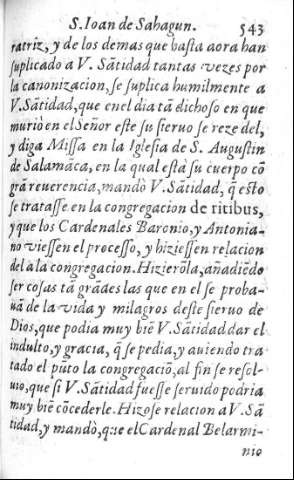 S. Ioan de Sahagun.
543
ratriz, y de los demas que basta aora han
suplicado a V. Sãtidad tantas vezes por
la canonizacion, se suplica humilmente a
V. Sãtidad, que en el dia tã dichoso en que
murio en el Señor este su sieruo se reze del,
y diga Missa en la Iglesia de S. Augustin
de Salamãca, en la qual està su cuerpo cõ
grã reuerencia, mandò V. Sãtidad, q̃ esto
se tratasse en la congregacion de ritibus,
y que los Cardenales Baronio, y Antonia-
no viessen el processo, y hiziessen relacion
del à la congregacion. Hizierõla, añadiẽdo
ser cosas tã grãdes las que en el se proba-
uã de la vida y milagros deste sieruo de
Dios, que podia muy biẽ V. Sãtidad dar el
indulto, y gracia, q̃ se pedia, y auiendo tra
tado el pũto la congregaciõ, al fin se resol-
uio, que si V. Sãtidad fuesse seruido podria
muy biẽ cõcederle. Hizose relacion a V. Sã
tidad, y mandò, que el Cardenal Belarmi-
nio